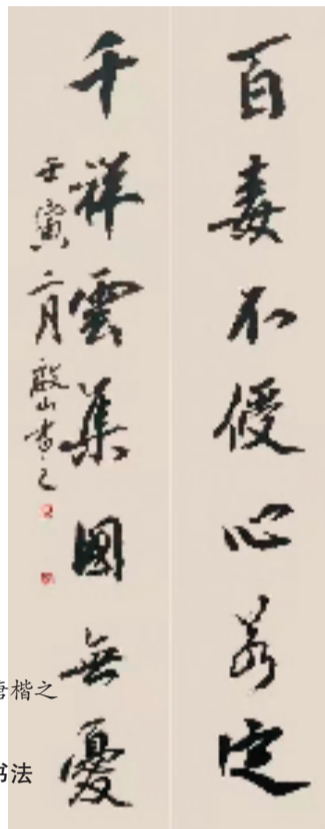 百毒不侵心若定
千祥雲集國無憂
壬寅二月殿山書之
唐楷之
书法